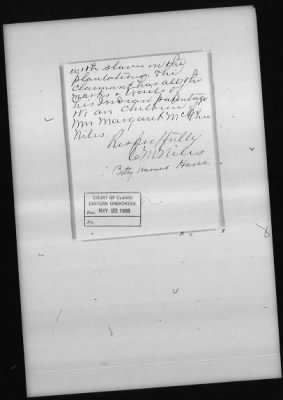 with slaves on the
plantation. The
claimant has all the
marks & traits of
his Indian parentage
Mrs Margaret
Niles.
Respectfully
C M Niles
COURT OF CLAIMS
EASTERN CHEROKEES.
Rec. MAY 22 1908
No.